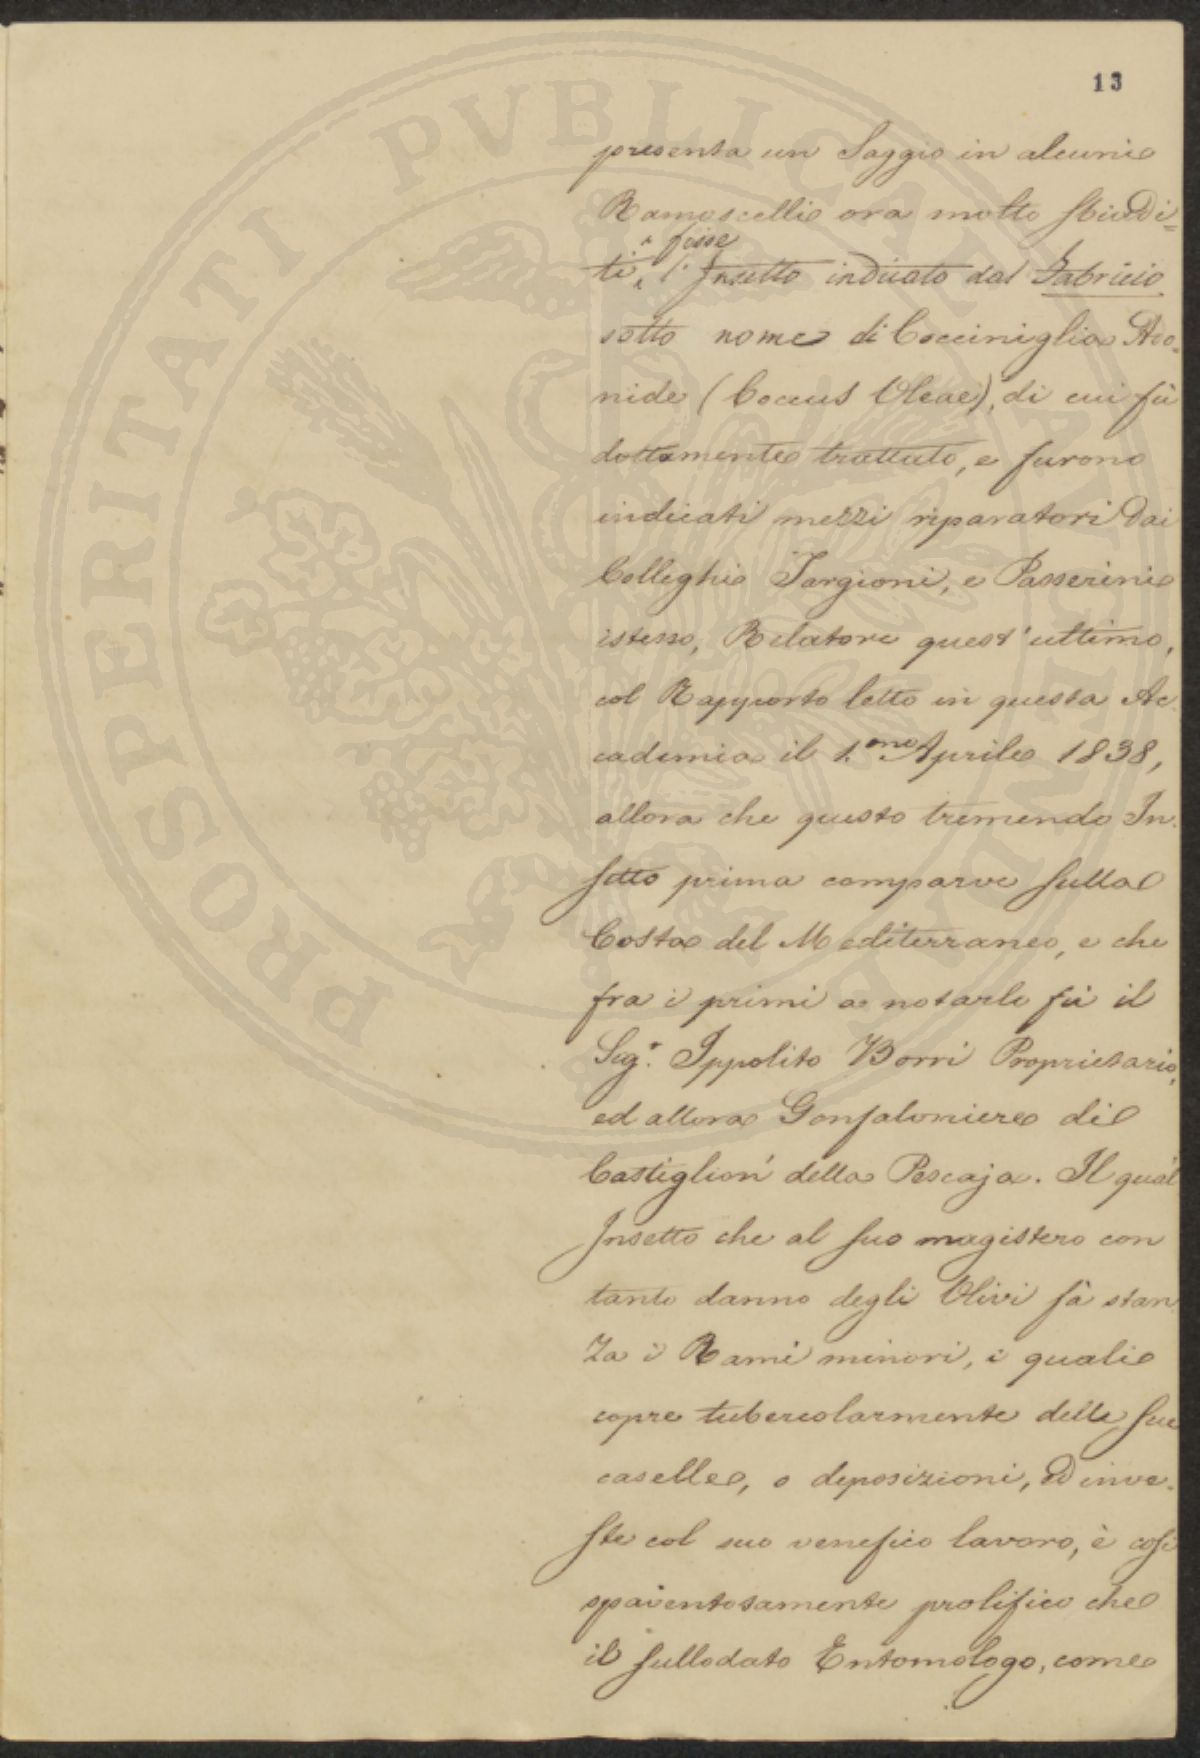 13
presenta un Saggio in alcuni
Ramoscelli ora molto sbiadi=
ti, fosse l'Insetto indicato dal Fabricio
sotto nome di Cocciniglia Ado-
nide (Coccus Oleae), di cui fù
dottamente trattato, e furono
indicati mezzi riparatori dai
Colleghi Targioni, e Passerini
istesso, Relatore quest'ultimo,
col Rapporto letto in questa Ac-
cademia il 1.mo Aprile 1838,
allora che questo tremendo In-
setto prima comparve sulla
Costa del Mediterraneo, e che
fra i primi a notarlo fù il
Sig.r Ippolito Borri Proprietario,
ed allora Gonfaloniere di
Castiglion' della Pescaja. Il qual'
Insetto che al suo magistero con
tanto danno degli Olivi fà stan-
za i Rami minori, i quali
copre tubercolarmente delle sue
caselle, o deposizioni, ed inve-
ste col suo venefico lavoro, è così
spaventosamente prolifico che
il sullodato Entomologo, come
PROSPERITATI PVBLICAE AVGENDAE